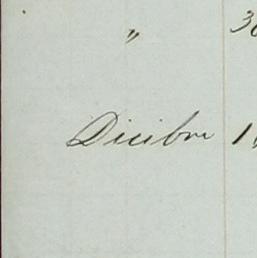 " 30
Dicibre 1